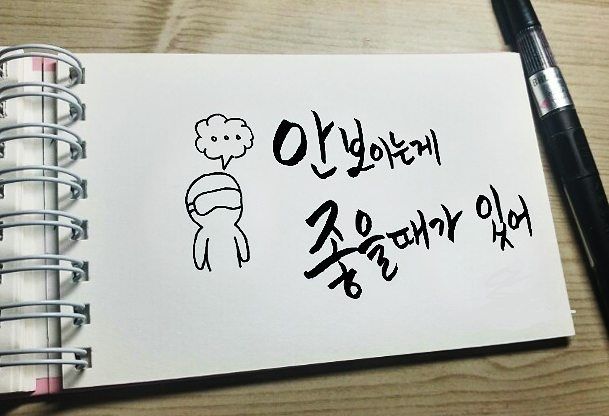 ...
안보이는게
좋을때가 있어